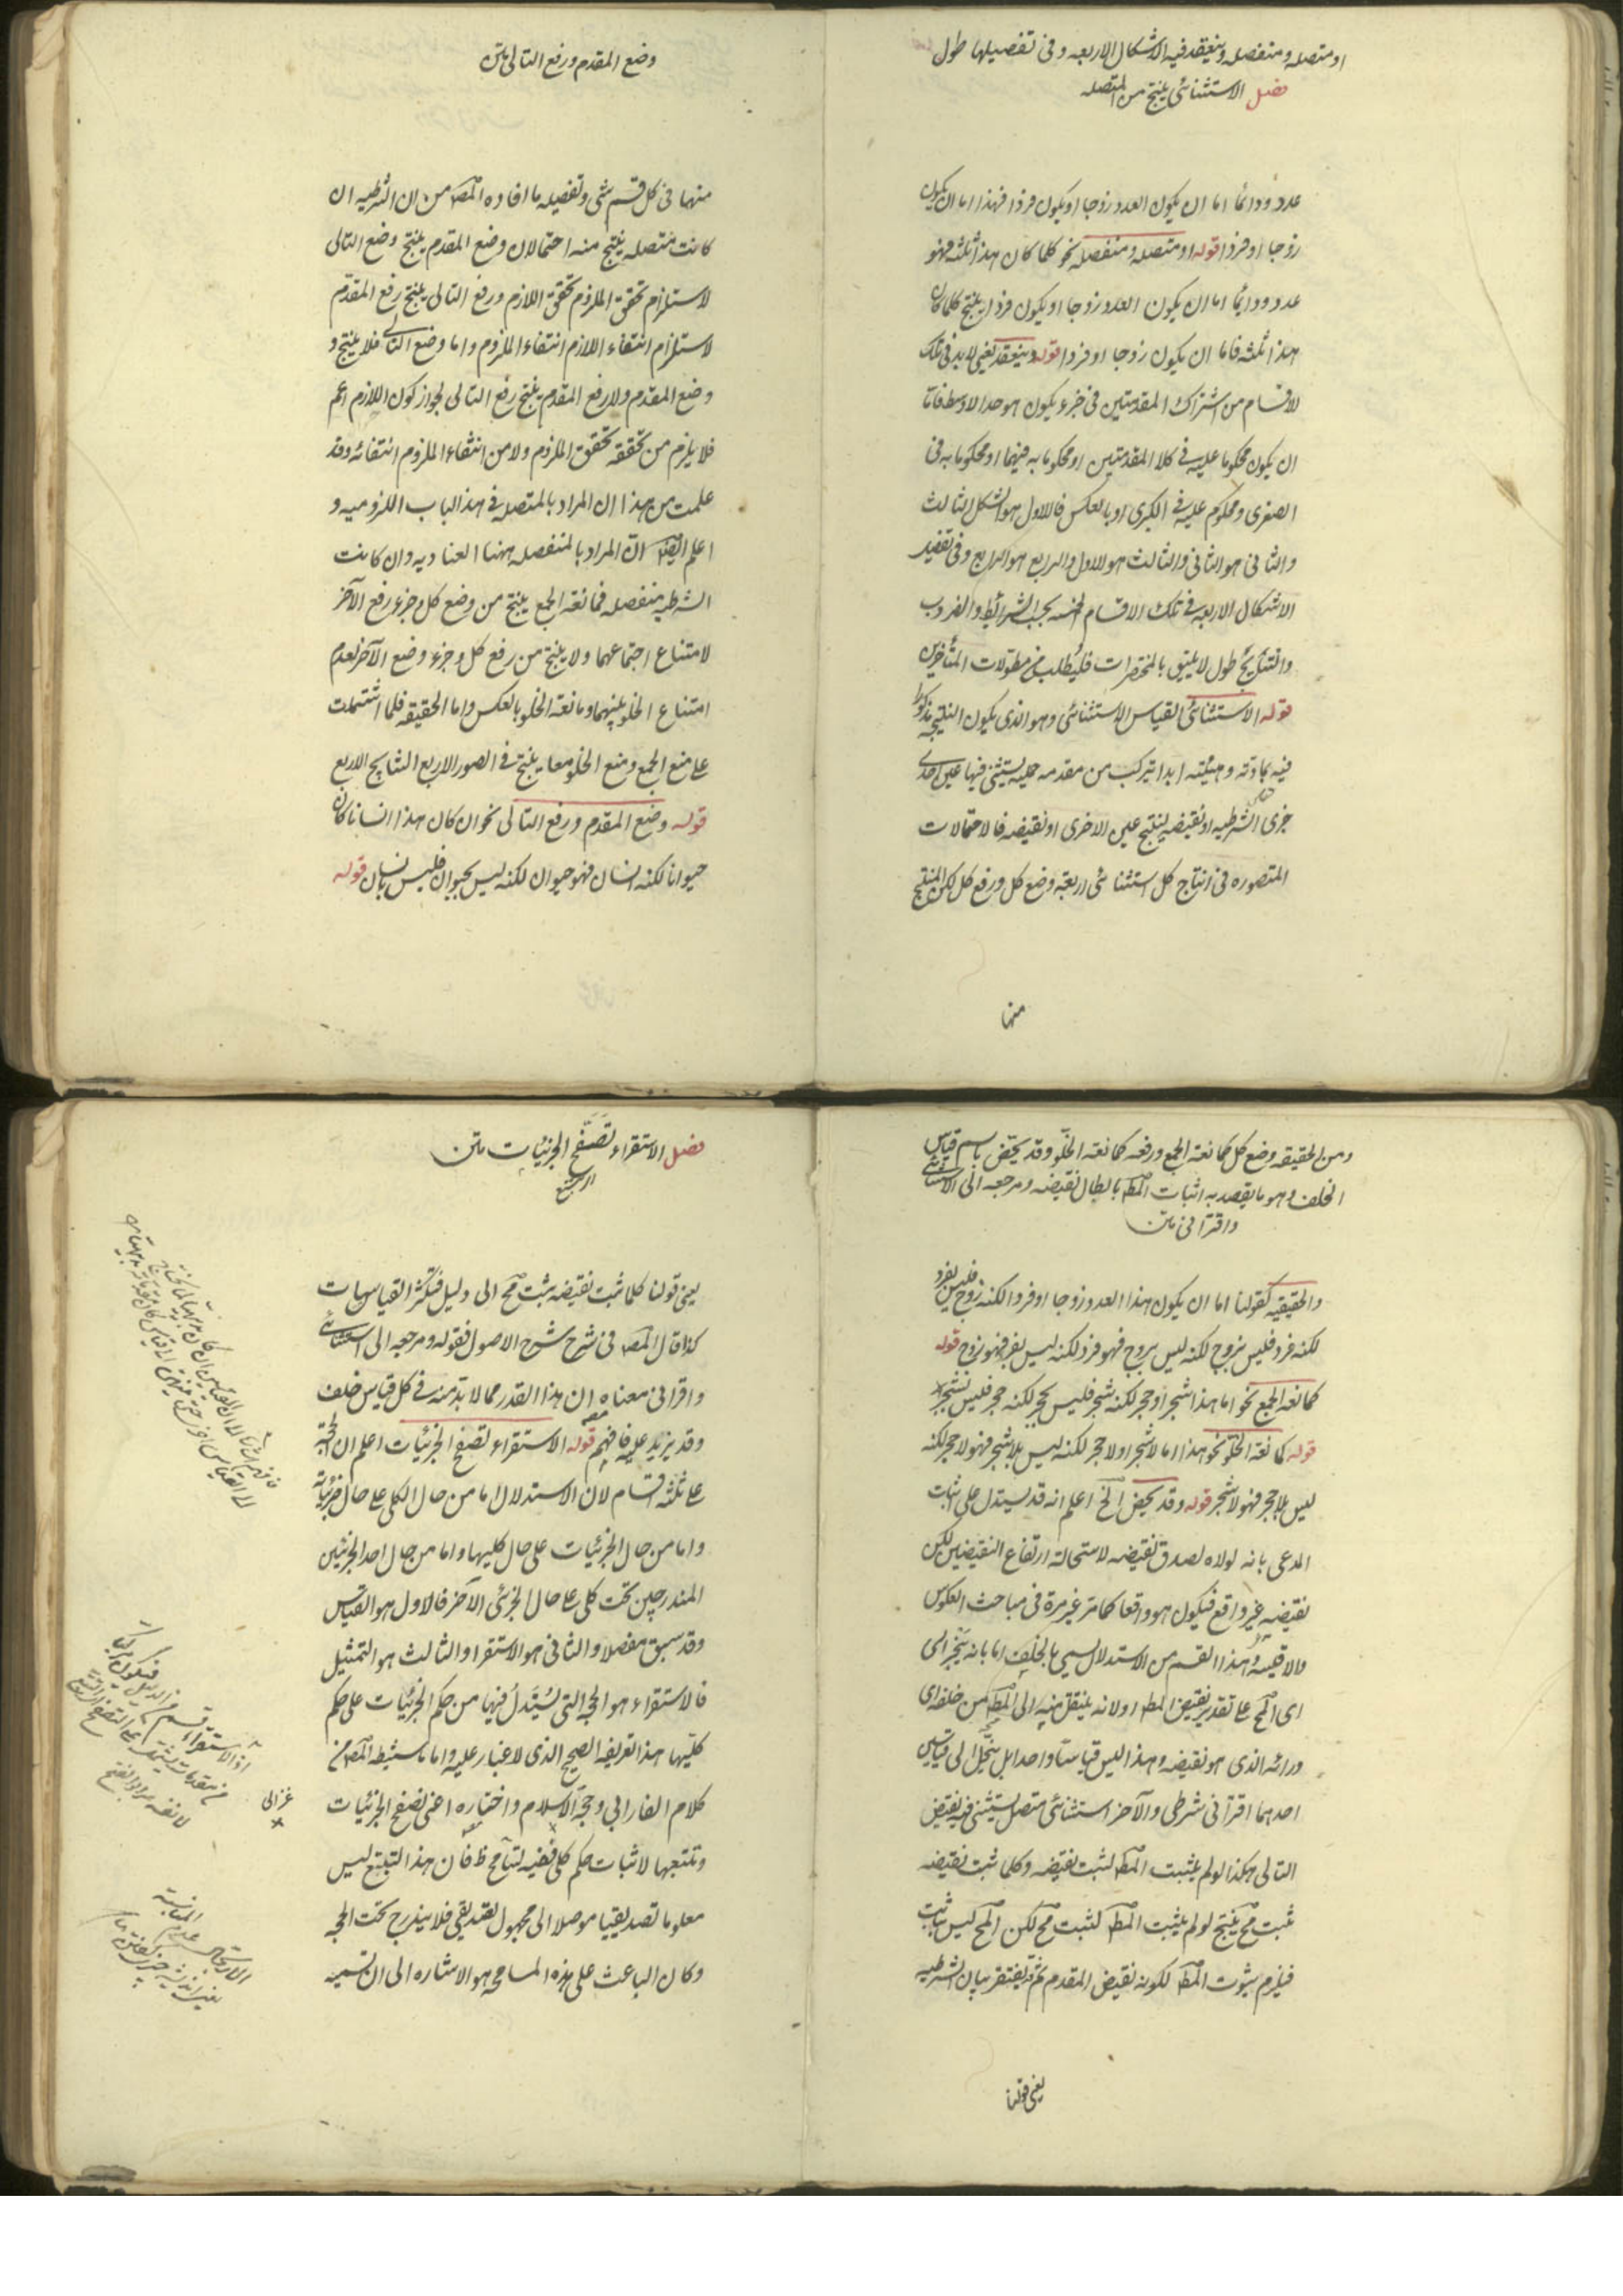 او متصله ومنفصله وينعقد فيه الاشكال الاربعه وفى تفصيلها طول
فصل الاستثنائى ينتج من المتصله
عدد ودائما اما ان يكون العدد زوجا او يكون فردا فهذا اما ان يكون
زوجا او فردا قوله او متصله ومنفصله نحو كلما كان هذا ثلثه فهو
عدد ودائما اما ان يكون العدد زوجا او يكون فردا ينتج كلما كان
هذا ثلثه فاما ان يكون زوجا او فردا قوله وينعقد يعنى لابد فى تلك
الاقسام من اشتراك المقدمتين فى جزء يكون هو حد الاوسط فاما
ان يكون محكوما عليه فى كلا المقدمتين او محكوما به فيهما او محكوما به فى
الصغرى ومحكوم عليه فى الكبرى او بالعكس فالاول هو الشكل الثالث
والثانى هو الثانى والثالث هو الاول والرابع هو الرابع وفى تفصيل
الاشكال الاربعه فى تلك الاقسام الخمسه بحسب الشرائط والضروب
والنتايج طول لا يليق بالمختصرات فليطلب من مطولات المتاخرين
قوله الاستثنائى القياس الاستثنائى وهو الذى يكون النتيجه مذكورا
فيه بمادته وهيئته ابدا يتركب من مقدمه حمليه يستثنى فيها عين احدى
جزئى الشرطيه او نقيضه لينتج عين الاخرى او نقيضه فالاحتمالات
المتصوره فى انتاج كل استثنائى اربعة وضع كل ورفع كل لكن المنتج
منها
وضع المقدم ورفع التالى متن
منها فى كل قسم شئ وتفصيله ما افاده المص من ان الشرطيه ان
كانت متصله ينتج منه احتمالان وضع المقدم ينتج وضع التالى
لاستلزام تحقق الملزوم تحقق اللازم ورفع التالى ينتج رفع المقدم
لاستلزام انتفاء اللازم انتفاء الملزوم واما وضع التالى فلا ينتج و
وضع المقدم ولا رفع المقدم ينتج رفع التالى لجواز كون اللازم اعم
فلا يلزم من تحققه تحقق الملزوم ولا من انتفاء الملزوم انتفائه وقد
علمت من هذا ان المراد بالمتصله فى هذا الباب اللزوميه و
اعلم ايضا ان المراد بالمنفصله ههنا العناديه وان كانت
الشرطيه منفصله فمانعة الجمع ينتج من وضع كل جزء رفع الآخر
لامتناع اجتماعهما ولا ينتج من رفع كل جزء وضع الآخر لعدم
امتناع الخلو بينهما ومانعة الخلو بالعكس واما الحقيقه فلما اشتملت
على منع الجمع ومنع الخلو معا ينتج فى الصور الاربع النتايج الاربع
قوله وضع المقدم ورفع التالى نحو ان كان هذا انسانا كان
حيوانا لكنه انسان فهو حيوان لكنه ليس بحيوان فليس بانسان قوله
ومن الحقيقه وضع كل كمانعة الجمع ورفعه كمانعة الخلو وقد يختص باسم قياس
الخلف وهو ما يقصد به اثبات المط بابطال نقيضه ومرجعه الى الاستثنائى
واقترانى متن
والحقيقيه كقولنا اما ان يكون هذا العدد زوجا او فردا لكنه زوج فليس بفرد
لكنه فرد فليس بزوج لكنه ليس بزوج فهو فرد لكنه ليس بفرد فهو زوج قوله
كمانعة الجمع نحو اما هذا شجر او حجر لكنه شجر فليس بحجر لكنه حجر فليس بشجر
قوله كمانعة الخلو نحو هذا اما لا شجر او لا حجر لكنه ليس بلا شجر فهو لا حجر لكنه
ليس بلا حجر فهو لا شجر قوله وقد يختص الخ اعلم انه قد يستدل على اثبات
المدعى بانه لولاه لصدق نقيضه لاستحالة ارتفاع النقيضين لكن
نقيضه غير واقع فيكون هو واقعا كما مر غير مرة فى مباحث العكوس
والاقيسة وهذا القسم من الاستدلال يسمى بالخلف اما بانه ينجر الى
اى المح على تقدير نقيض المط او لانه ينتقل منه الى المط من خلفه اى
ورائه الذى هو نقيضه وهذا ليس قياسا واحدا بل ينحل الى قياسين
احدهما اقترانى شرطى والآخر استثنائى متصل يستثنى فيه نقيض
التالى هكذا لو لم يثبت المط لثبت نقيضه وكلما ثبت نقيضه
ثبت مح ينتج لو لم يثبت المط لثبت مح لكن المح ليس بثابت
فيلزم ثبوت المط لكونه نقيض المقدم ثم قد يفتقر بيان الشرطيه
يعنى قولنا
فصل الاستقراء تصفح الجزئيات متن
يعنى قولنا كلما ثبت نقيضه ثبت مح الى دليل فتكثر القياسات
كذا قال المص فى شرح شرح الاصول فقوله ومرجعه الى استثنائى
واقترانى معناه ان هذا القدر مما لابد منه فى كل قياس خلف
وقد يزيد عليه فافهم قوله الاستقراء تصفح الجزئيات اعلم ان الحجة
على ثلثه اقسام لان الاستدلال اما من حال الكلى على حال جزئياته
واما من حال الجزئيات على حال كليها واما من حال احد الجزئيين
المندرجين تحت كلى على حال الجزئى الآخر فالاول هو القياس
وقد سبق مفصلا والثانى هو الاستقرا والثالث هو التمثيل
فالاستقراء هو الحجه التى يستدل فيها من حكم الجزئيات على حكم
كليها هذا تعريفه الصحيح الذى لا غبار عليه واما ما استنبط المص من
كلام الفارابى وحجة الاسلام واختاره اعنى تصفح الجزئيات
وتتبعها لاثبات حكم كلى ففيه تسامح ظ فان هذا التتبع ليس
معلوما تصديقيا موصلا الى مجهول تصديقى فلا يندرج تحت الحجه
وكان الباعث على هذه المسامحه هو الاشاره الى ان تسميه
غزالى